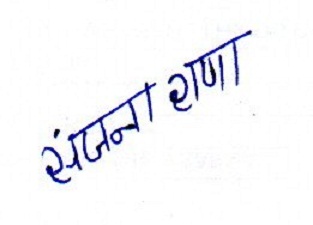 संजना राणा